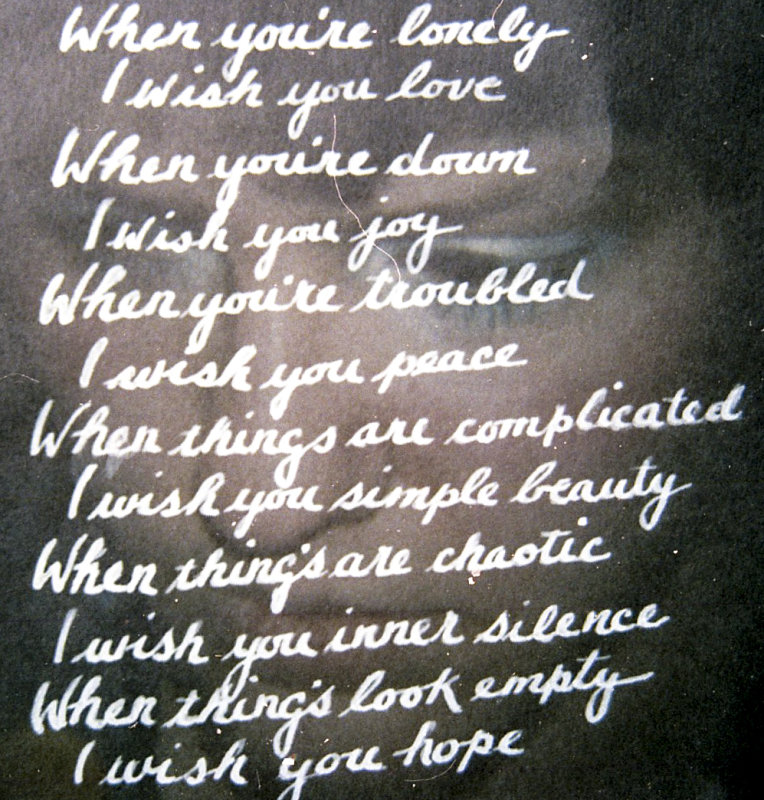 When you're lonely
I wish you love
When you're down
I wish you joy
When you're troubled
I wish you peace
When things are complicated
I wish you simple beauty
When things are chaotic
I wish you inner silence
When things look empty
I wish you hope